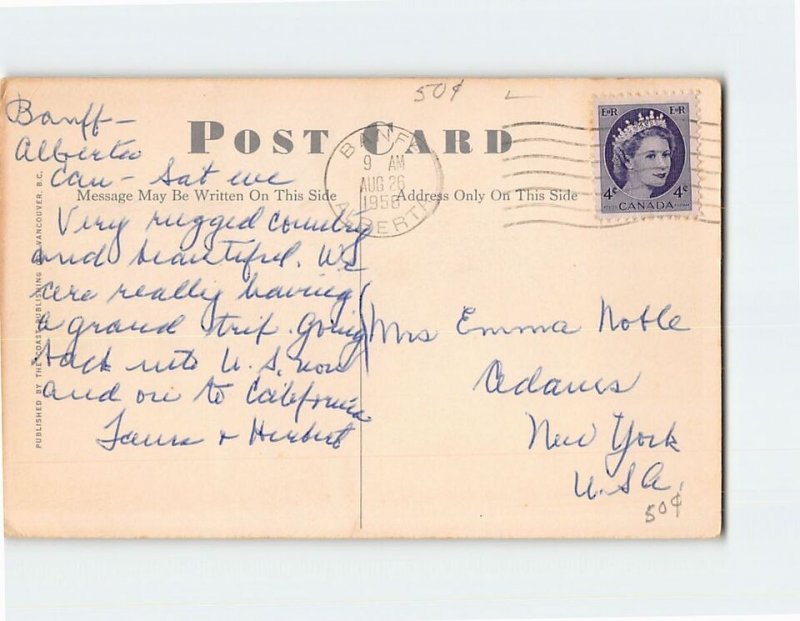 50¢
POST CARD
Banff -
Alberta
Can - Sat eve
Message May Be Written On This Side
Address Only On This Side
BANFF
9 AM
AUG 26
1958
ALBERTA
E II R E II R
4c 4c
CANADA
Very rugged country
and beautiful. We
are really having
a grand trip. Going
back into U.S. now
and on to California
Laura & Herbert
Mrs Emma Noble
Adams
New York
U.S.A.
50¢
PUBLISHED BY THE COAST PUBLISHING VANCOUVER, B.C.